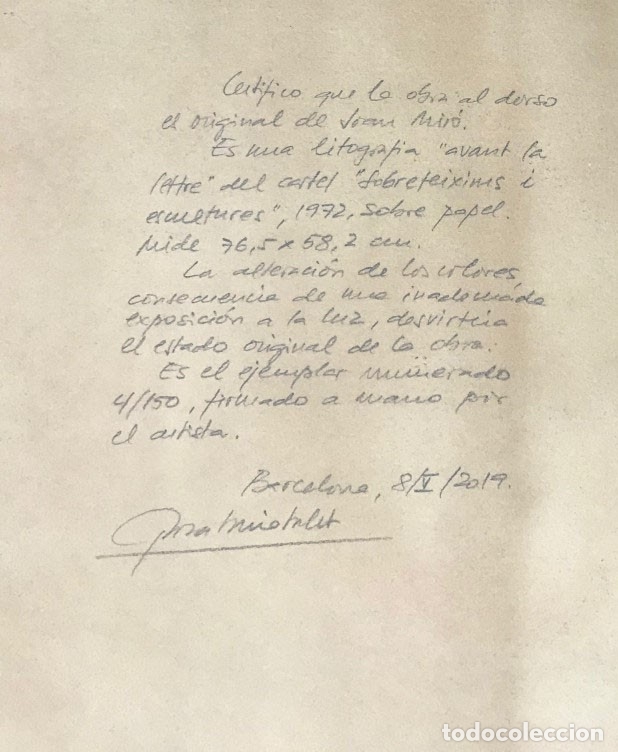 Certifico que la obra al dorso
es original de Joan Miró.
Es una litografia "avant la
lettre" del cartel "Sobreteixims i
escultures", 1972, sobre papel.
Mide 76,5 x 58,2 cm.
La alteración de los colores
consecuencia de una inadecuada
exposición a la luz, desvirtúa
el estado original de la obra.
Es el ejemplar numerado
4/150, firmado a mano por
el artista.
Barcelona, 8/V/2019.
todocoleccion